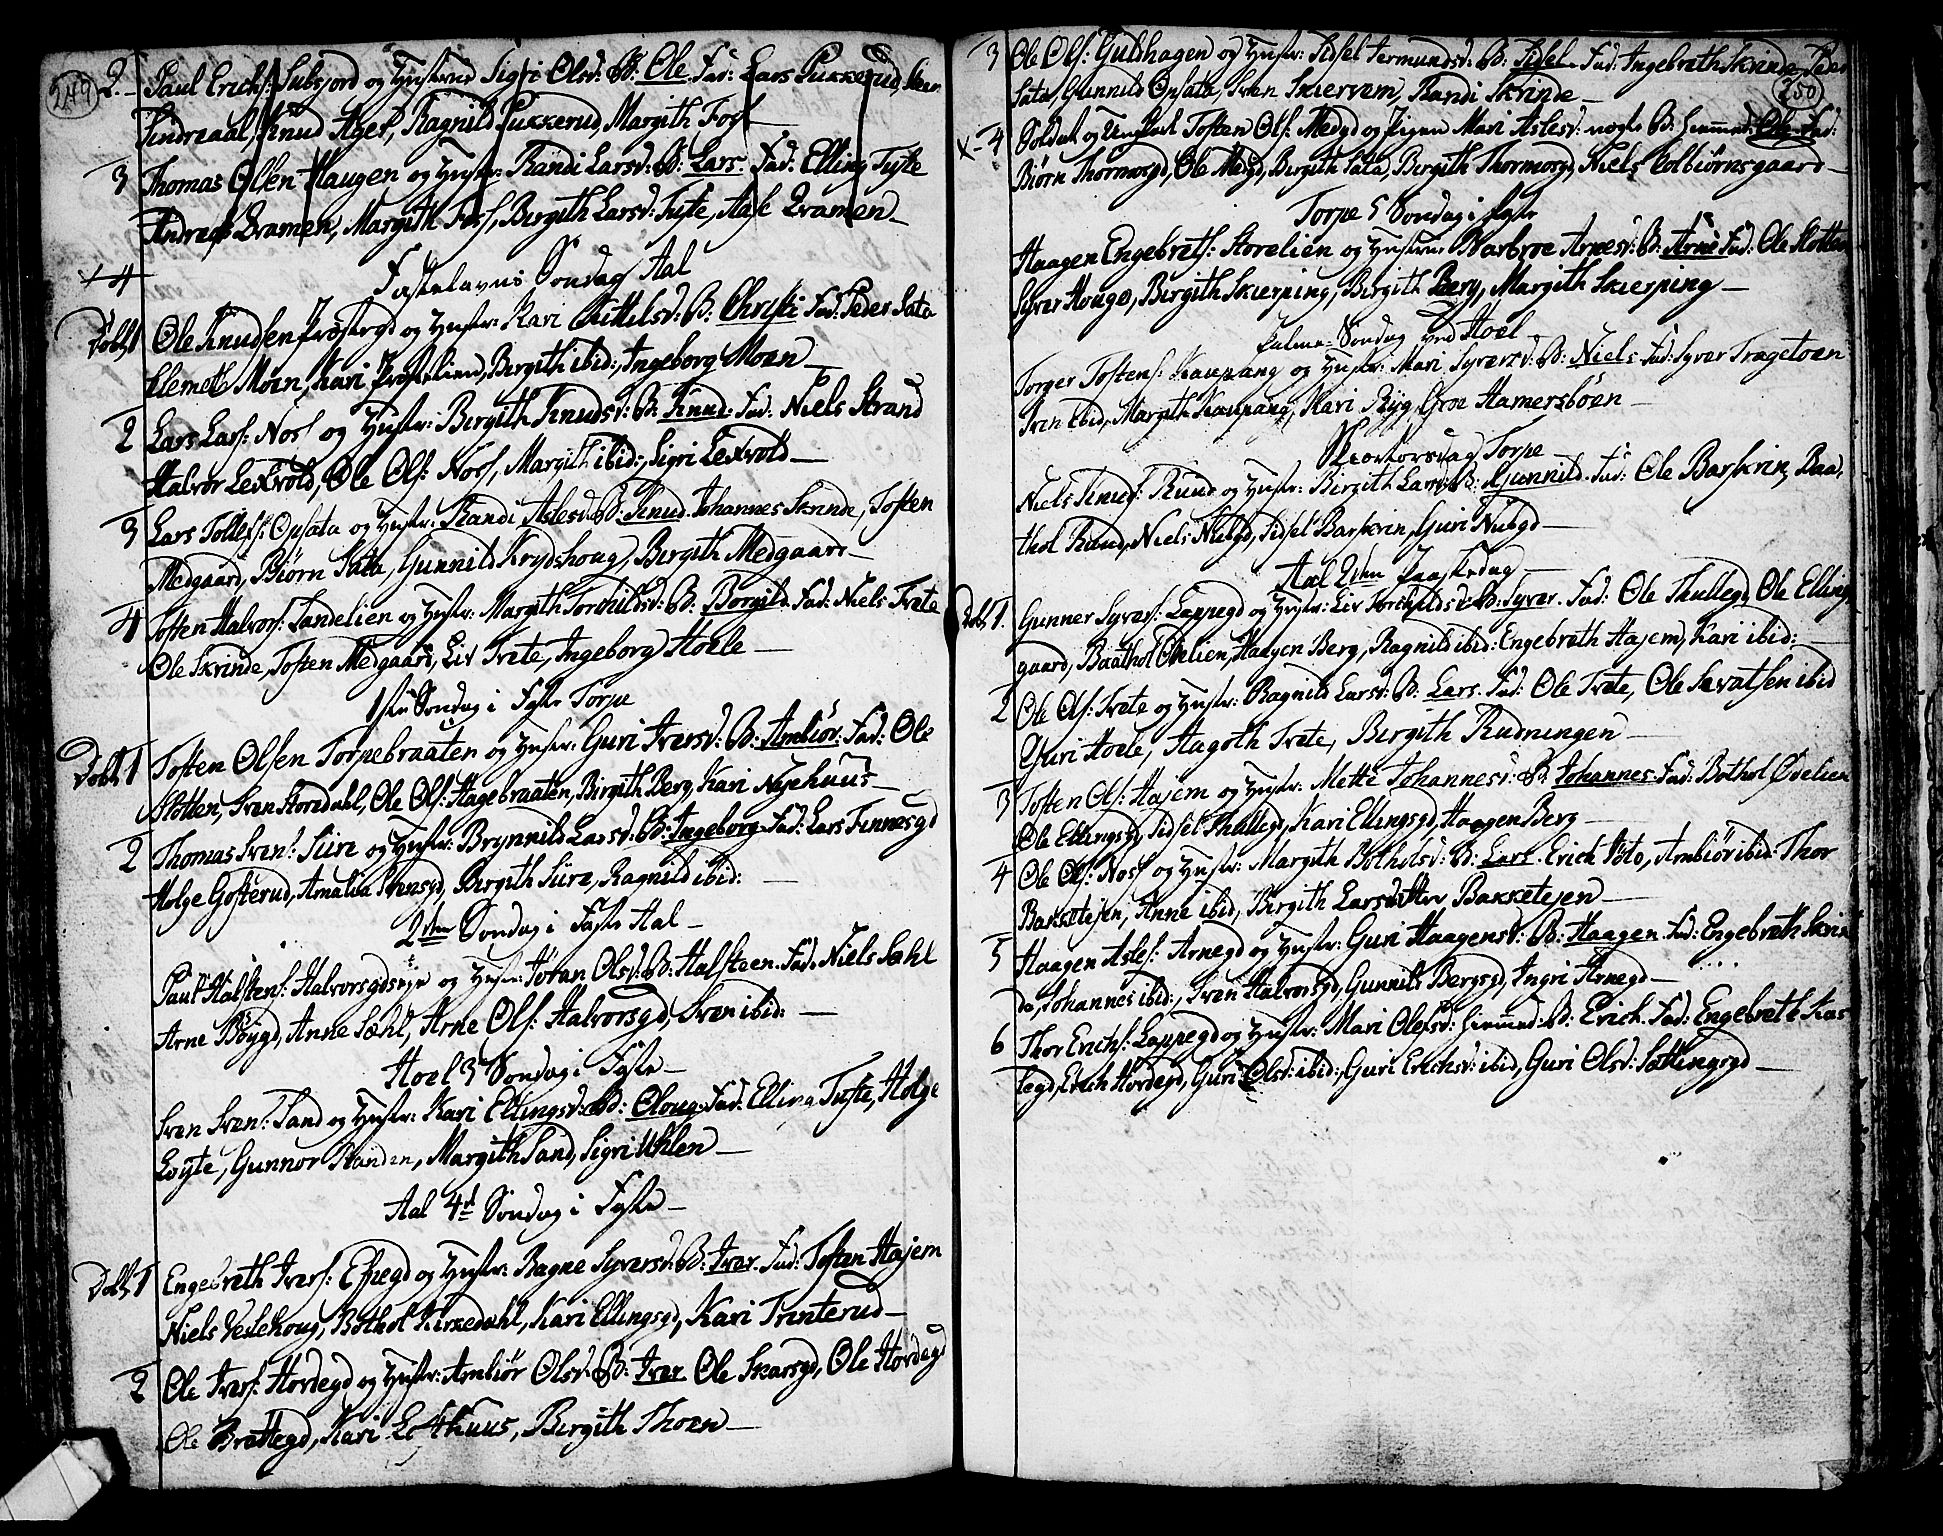 249
2. Paul Erichs: Subsjord og Hustrue Sigri Olsd: B: Ole. Fad: Lars Tukkerud, Sven
Sindreaal, Knud Ager, Ragnild Tukkerud, Margith Foss
3 Thomas Olsen Haugen og Hustr: Randi Larsd: B: Lars. Fad: Elling Tufte
Andreas Qvamen, Margith Foss, Birgith Larsd: Tufte, Aase Qvamen
4
Fastelavns Søndag Aal
Døbt 1 Ole Knudsen Præstegd og Hustr: Kari Kittilsd: B: Christi Fad: Peder Sata
Clemeth Moen, Kari Præstelien, Birgith ibid:, Ingeborg Moen
2 Lars Lars: Noss og Hustr: Birgith Knudsd: B: Knud. Fad: Niels Strand
Halvor Lexvold, Ole Ols: Noss, Margith ibid:, Sigri Lexvold
3 Lars Tollefs: Opsata og Hustr: Randi Aslesd: B: Knud. Johannes Skrinde, Tosten
Medgaard, Biørn Sata, Gunnild Krydshoug, Birgith Medgaard
4 Tosten Halvors: Sandelien og Hustr: Margith Torchildsd: B: Borgild. Fad: Niels Trete
Ole Skrinde, Tosten Medgaard, Liv Trete, Ingeborg Hoele
1ste Søndag i Faste Torpe
Døbt 1 Tosten Olsen Torpebraaten og Hustr: Guri Iversd: B: Ambiør. Fad: Ole
Slotten, Sven Storedahl, Ole Ols: Hagebraaten, Birgith Berg, Kari Nyehuus
2 Thomas Svens: Süre og Hustr: Brynnild Larsd: B: Ingeborg. Fad: Lars Finnesgd
Holge Gosterud, Amalia Svensgd, Birgith Süre, Ragnild ibid:
2den Søndag i Faste Aal
Paul Halstens: Halvorsgdseye og Hustr: Jøran Olsd: B: Halsteen. Fad: Niels Sæhl
Arne Bøygd, Anne Sæhl, Arne Ols: Halvorsgd, Sven ibid:
Hoel 3 Søndag i Faste
Sven Svens: Sand og Hustr: Kari Ellingsd: B: Oloug. Fad: Elling Tufte, Holge
Løyte, Gunnor Standen, Margith Sand, Sigri Uhlen
Aal 4de Søndag i Faste
Døbt 1 Engebreth Ivers: Espegd og Hustr: Ragne Syversd: B: Iver. Fad: Tosten Hajem
Niels Veslehoug, Bothol Kirkedahl, Kari Ellingsgd, Kari Trinterud
2 Ole Ivers: Hordegd og Hustr: Ambiør Olsd: B: Iver Ole Skarsgd, Ole Hordegd
Ole Brattegd, Kari Lofthuus, Birgith Thoen
250
3 Ole Ols: Gulshagen og Hustr: Sidsel Germundsd: B: Sidsel. Fad: Ingebreth Skrinde, Peder
Sata, Gunnild Opsata, Sven Skiervem, Randi Skrinde
x-4 Soldat og Ungkarl Tosten Ols: Medgd og Pigen Mari Aslesd: uægte B: hiemmed: Ole. Fad:
Biørn Thormosgd, Ole Medgd, Birgith Sata, Birgith Thormosgd, Niels Colbiørnsgaard
Torpe 5 Søndag i Faste
Haagen Engebreths: Storelien og Hustrue Barbroe Arnesd: B: Arne Fad: Ole Slotten
Syver Houge, Birgith Skierping, Birgith Berg, Margith Skierping
Palme-Søndag ved Hoel
Torger Tostens: Kaupang og Hustr: Mari Syversd: B: Niels Fad: Syver Tragetoen
Sven ibid, Margith Kaupang, Kari Ryg, Groe Hamersbøen
Skiertorsdag Torpe
Niels Knuds: Ruud og Hustr: Birgith Larsd: B: Gunnild. Fad: Ole Barskrin, Baa-
thol Ruud, Niels Nubgd, Sidsel Barskrin, Guri Nubgd
Aal 2den Paaskedag
Døbt 1. Gunner Syvers: Lappegd og Hustr: Liv Torchildsd: B: Syver. Fad: Ole Thullegd, Ole Ellings
gaard, Baathol Øvelien, Haagen Berg, Ragnild ibid: Engebreth Hajem, Kari ibid:
2 Ole Ols: Trete og Hustr: Ragnild Larsd: B: Lars. Fad: Ole Trete, Ole Sevatsen ibid
Guri Hoele, Aagoth Trete, Birgith Rudningen
3 Tosten Ols: Hajem og Hustr: Mette Johannesd: B: Johannes. Fad: Bothol Øvelien
Ole Ellingsgd, Sidsel Thullegd, Kari Ellingsgd, Haagen Berg
4 Ole Ols: Noss og Hustr: Margith Botholsd: B: Lars. Erich Sxto, Ambiør ibid: Thor
Bakketejen, Anne ibid, Birgith Larsd: Bakketejen
5 Haagen Asles: Arnegd og Hustr: Guri Haagensd: B: Haagen. Fad: Engebreth Skrin
de, Johannes ibid:, Sven Halvorsgd, Gunnild Bergsgd, Ingri Arnegd
6 Thor Erichs: Lappegd og Hustr: Mari Olefsd: hiemmed: B: Erich. Fad: Engebreth Kas
legd, Erich Hordegd, Guri Olsd: ibid:, Guri Erichsd: ibid, Guri Olsd: Sattingsgd